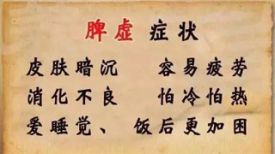 脾虚 症状
皮肤暗沉 容易疲劳
消化不良 怕冷怕热
爱睡觉、 饭后更加困